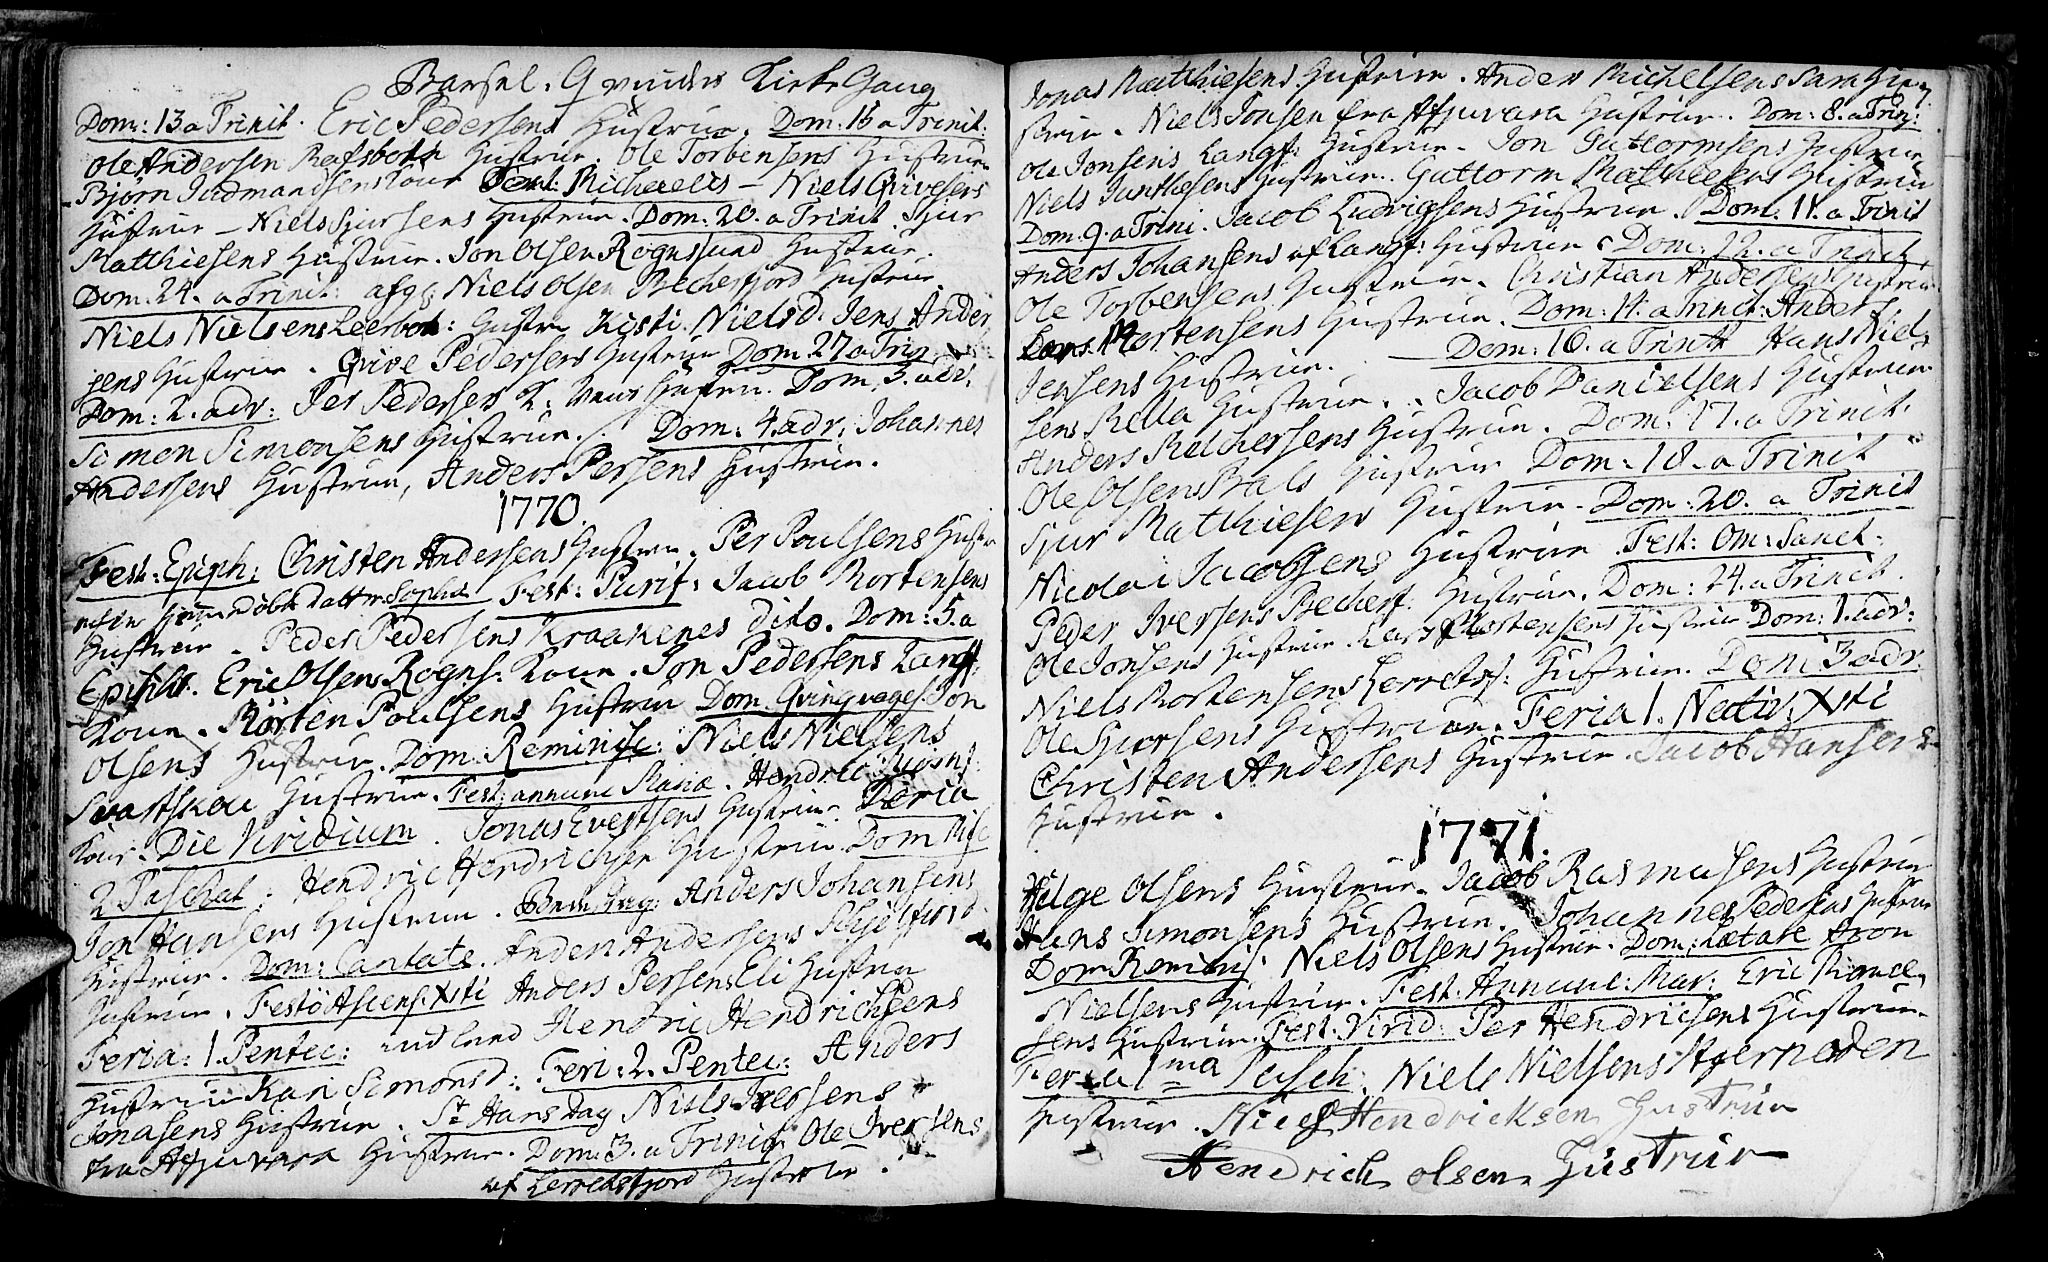 Barsel. Qvinders Kirke Gang
Dom: 13. a Trinit. Eric Pedersens Hustrue. Dom: 15 a Trinit:
Ole Andersen Rafsbotn Hustrue. Ole Torbensens Hustrue
Bjørn Kone Fest: Michaelis – Niels
Hustrue – Niels Sjursens Hustrue. Dom: 20. a Trinit. Sjur
Matthiesens Hustrue. Jon Olsen Rognsund Hustrue.
Dom: 24. a Trinit: Niels Olsen Becherfjord Hustrue.
Niels Nielsens Leerbotn: Hustru Kisti Nielsd: Jens Ander
sens Hustrue. Grive Pedersens Hustrue Dom: 27 a Trin
Dom: 2. adv: Per Pedersens Dom: 3. adv:
Simon Simonsens Hustrue. Dom: 4. adv: Johannes
Andersens Hustrue, Anders Persens Hustrue.
1770.
Fest: Epiph: Christen Andersens Hustrue. Per Poulsens Hustr
Sophia Fest: Purif: Jacob Mortensens
Hustrue. Peder Pedersens Kraakenes dito. Dom: 5. a
Epiph. Eric Olsens Rogns. Kone. Jon Pedersens Langf:
Kone. Mørten Poulsens Hustrue Dom. Qvinqvages. Jon
Olsens Hustrue. Dom: Reminisc: Niels Nielsens
Svartskou Hustrue. Fest: annunc Mariæ. Hendric
Kone. Die Viridium. Jonas Evertsens Hustrue. Feria
2 Paschat: Hendric Hendrichsen Hustrue. Dom Mise
Jon Hansens Hustrue. Anders Johansens
Hustrue. Dom: Cantate. Anders Andersens
Hustrue. Festo Ascens. Xsti Anders Persens Eli Hustrue
Feria: 1. Pentec: Hendric Hendrichsens
Hustrue Kari Simonsd: Feri: 2. Pentec: Anders
Jonasens Hustrue. St Hans Dag Niels Iversens
fra Afjuvara Hustrue. Dom: 3. a Trinit Ole Iversens
af Lerretsfjord Hustrue.
Jonas Matthiesens Hustrue. Anders Michelsens Sara Hu
strue. Niels Jonsen fra Afjuvara Hustrue. Dom: 8. a Trin:
Ole Jonsens Langf: Hustrue. Jon Guttormsens Hustrue
Niels Hustrue. Guttorm Mathisens Hustrue
Dom. 9. a Trini. Jacob Ludvigsens Hustrue. Dom: 11. a Trinit
Anders Johansens af Langf: Hustrue. Dom: 12. a Trinit.
Ole Torbensens Hustrue. Christian Andersens Hustrue
Lars Mortensens Hustrue. Dom: 14. a Trinit: Anders
Jensens Hustrue. Dom: 16. a Trinit Hans Niel
sens Rella Hustrue. Jacob Danielsens Hustrue
Anders Melchersens Hustrue. Dom: 17. a Trinit.
Ole Olsens Bals Hustrue Dom: 18. a Trinit
Sjur Matthiesen Hustrue. Dom: 20. a Trinit
Nicolai Jacobsens Hustrue Fest: Om: Sanct:
Peder Iversens Becherf: Hustrue. Dom: 24. a Trinit.
Ole Jonsens Hustrue. Lars Mortensens Hustrue Dom: 1. adv:
Niels Mortensens Lerretsf: Hustrue. Dom: 3 adv:
Ole Sjursens Hustrue. Feria 1. Nativ: Xsti
Christen Andersens Hustrue. Jacob Hansens
Hustrue.
1771.
Helge Olsens Hustrue. Jacob Rasmusens Hustrue
Hans Simonsens Hustrue. Johannes Pedersens Hustrue
Dom Reminis: Niels Olsens Hustrue. Dom: Lætare Aron
Nielsens Hustrue. Fest: Annunc: Mar: Eric Michel
sens Hustrue. Fest: Virid: Per Hendrichsens Hustrue.
Feria 1ma Pasch: Niels Nielsens Stjernøen
Hustrue. Niels Hendricksen Hustrue
Hendrich olsen Hustrue